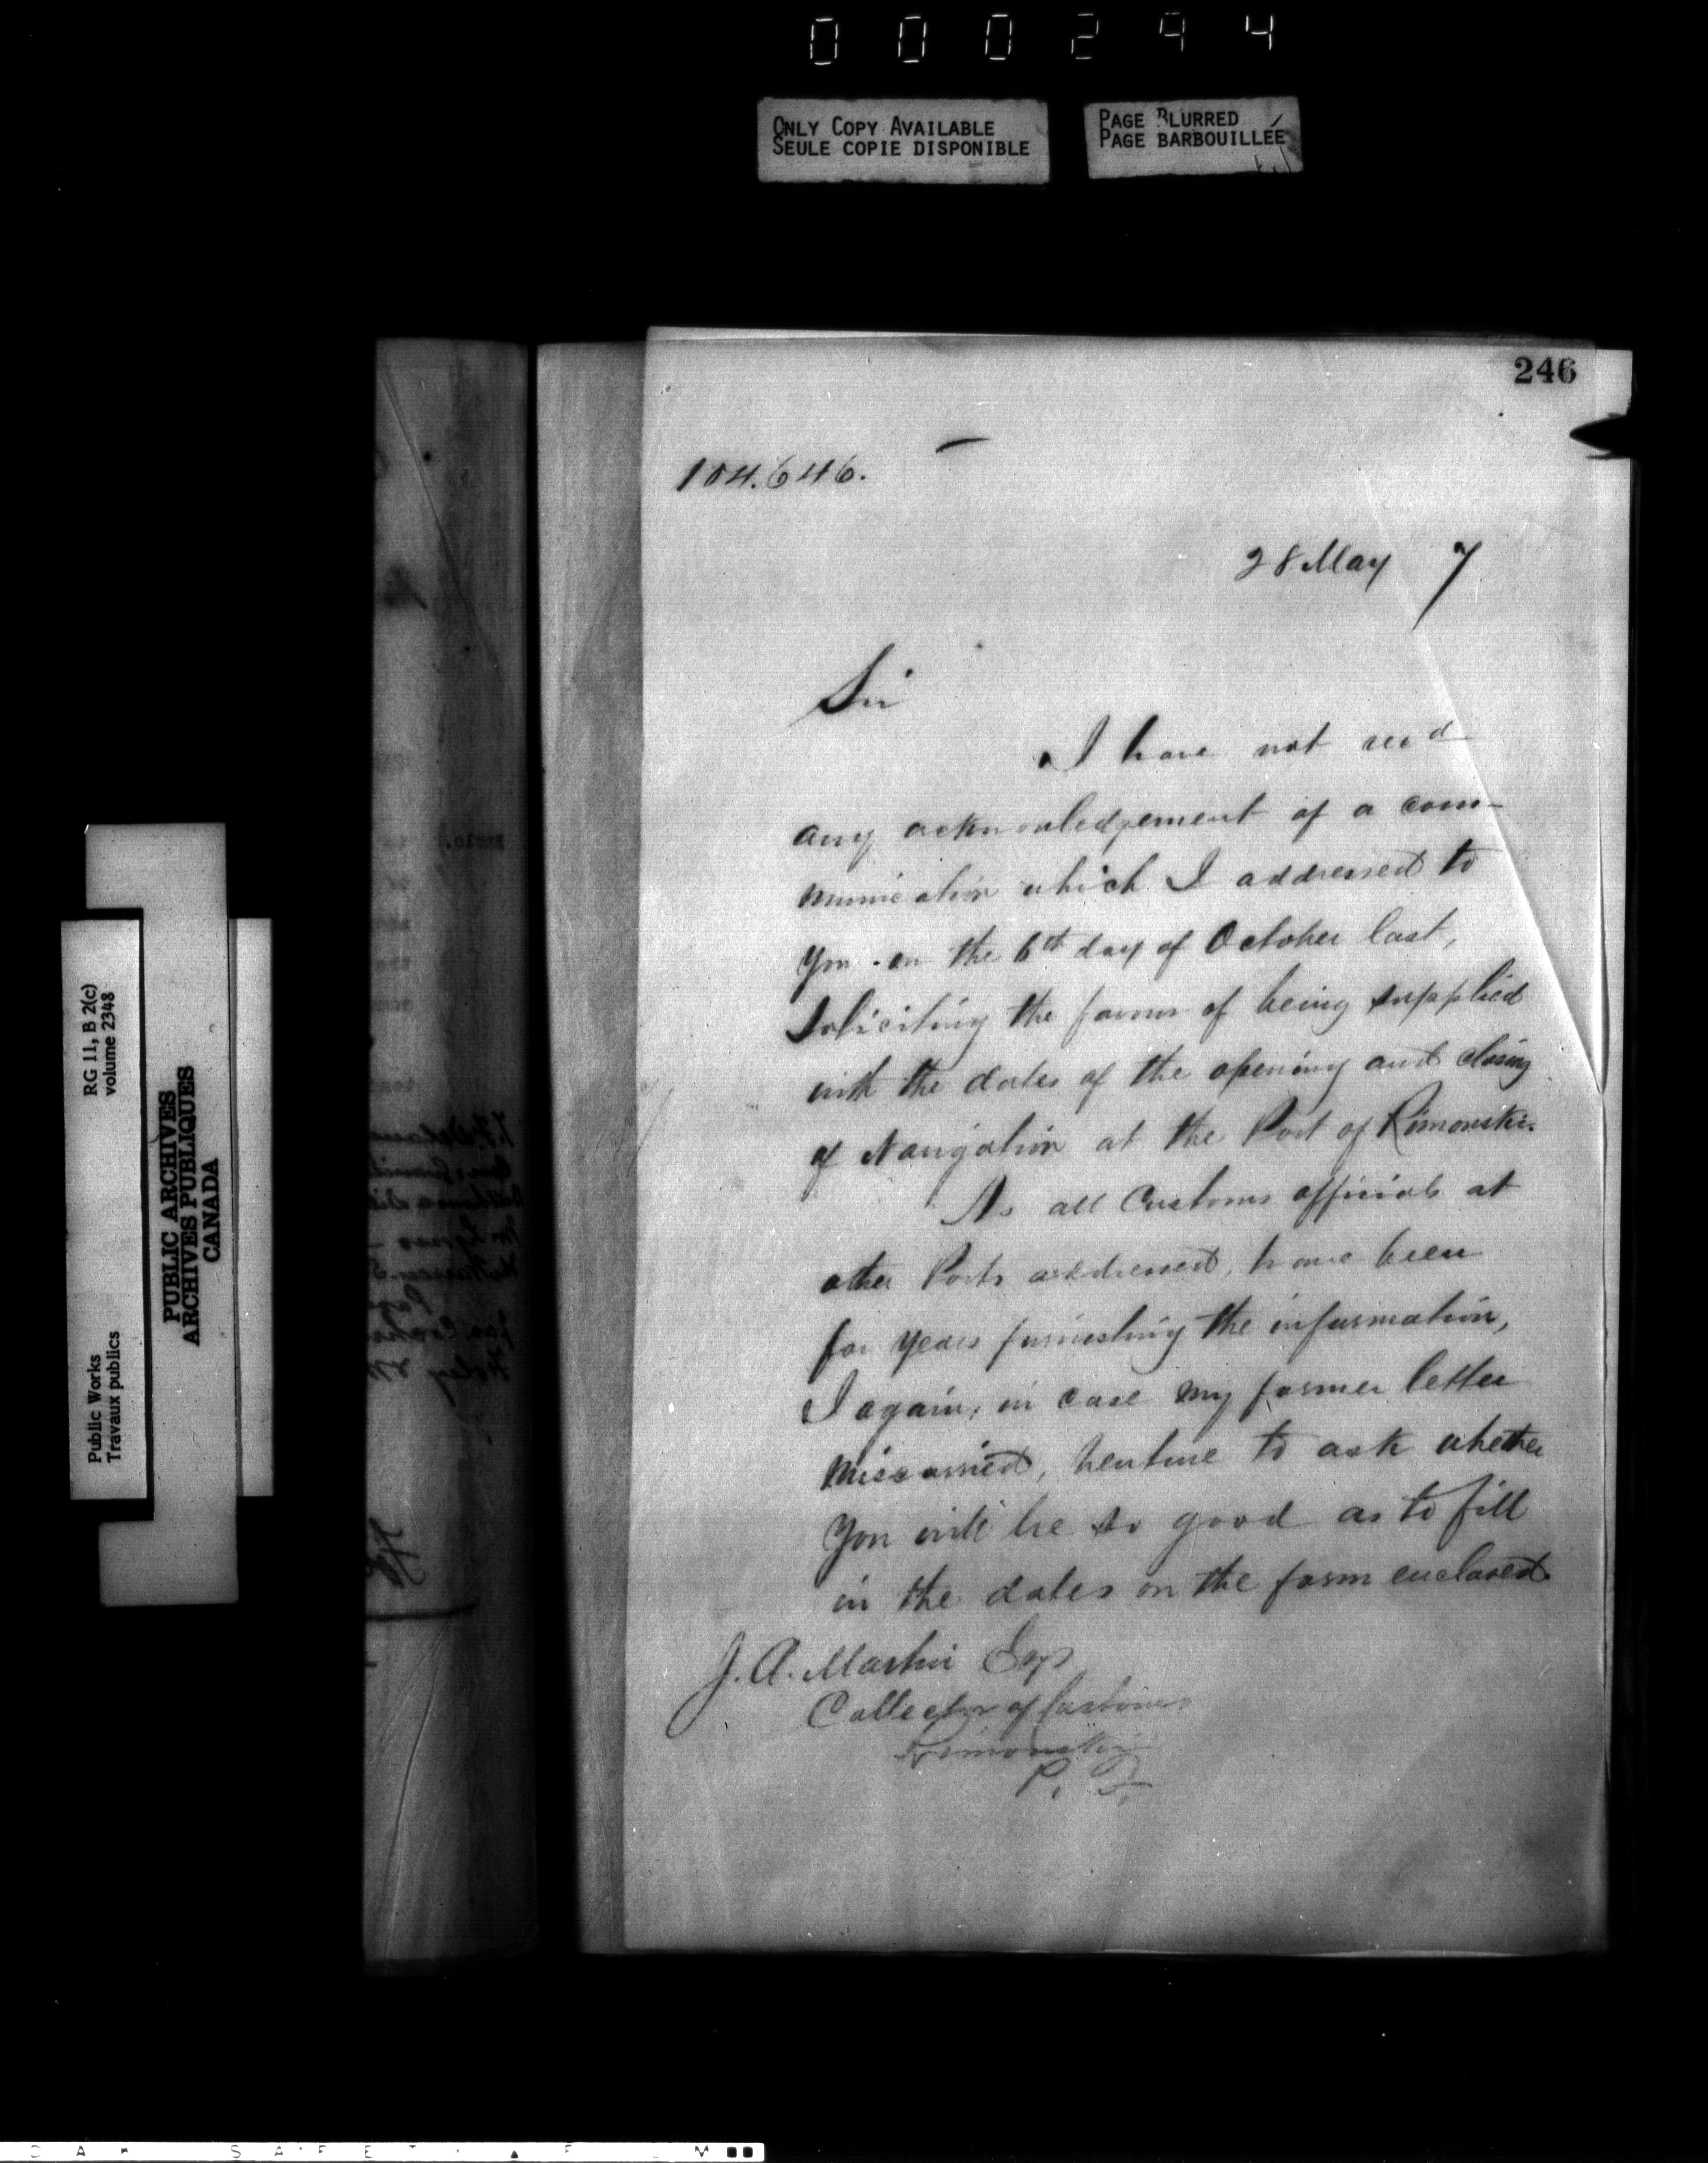 000294
ONLY COPY AVAILABLE
SEULE COPIE DISPONIBLE
PAGE BLURRED
PAGE BARBOUILLÉE
246
104.646.
28 May 7
Sir
I have not recd
any acknowledgement of a com-
munication which I addressed to
you on the 6th day of October last,
soliciting the favour of being supplied
with the dates of the opening and closing
of Navigation at the Port of Rimouski.
As all Customs officials at
other Ports addressed, have been
for years furnishing the information,
I again, in case my former letter
miscarried, venture to ask whether
you will be so good as to fill
in the dates on the form enclosed
J. A. Martin Esqr
Collector of Customs
Rimouski
P. Q.
RG 11, B 2(c)
volume 2348
Public Works
Travaux publics
PUBLIC ARCHIVES
ARCHIVES PUBLIQUES
CANADA